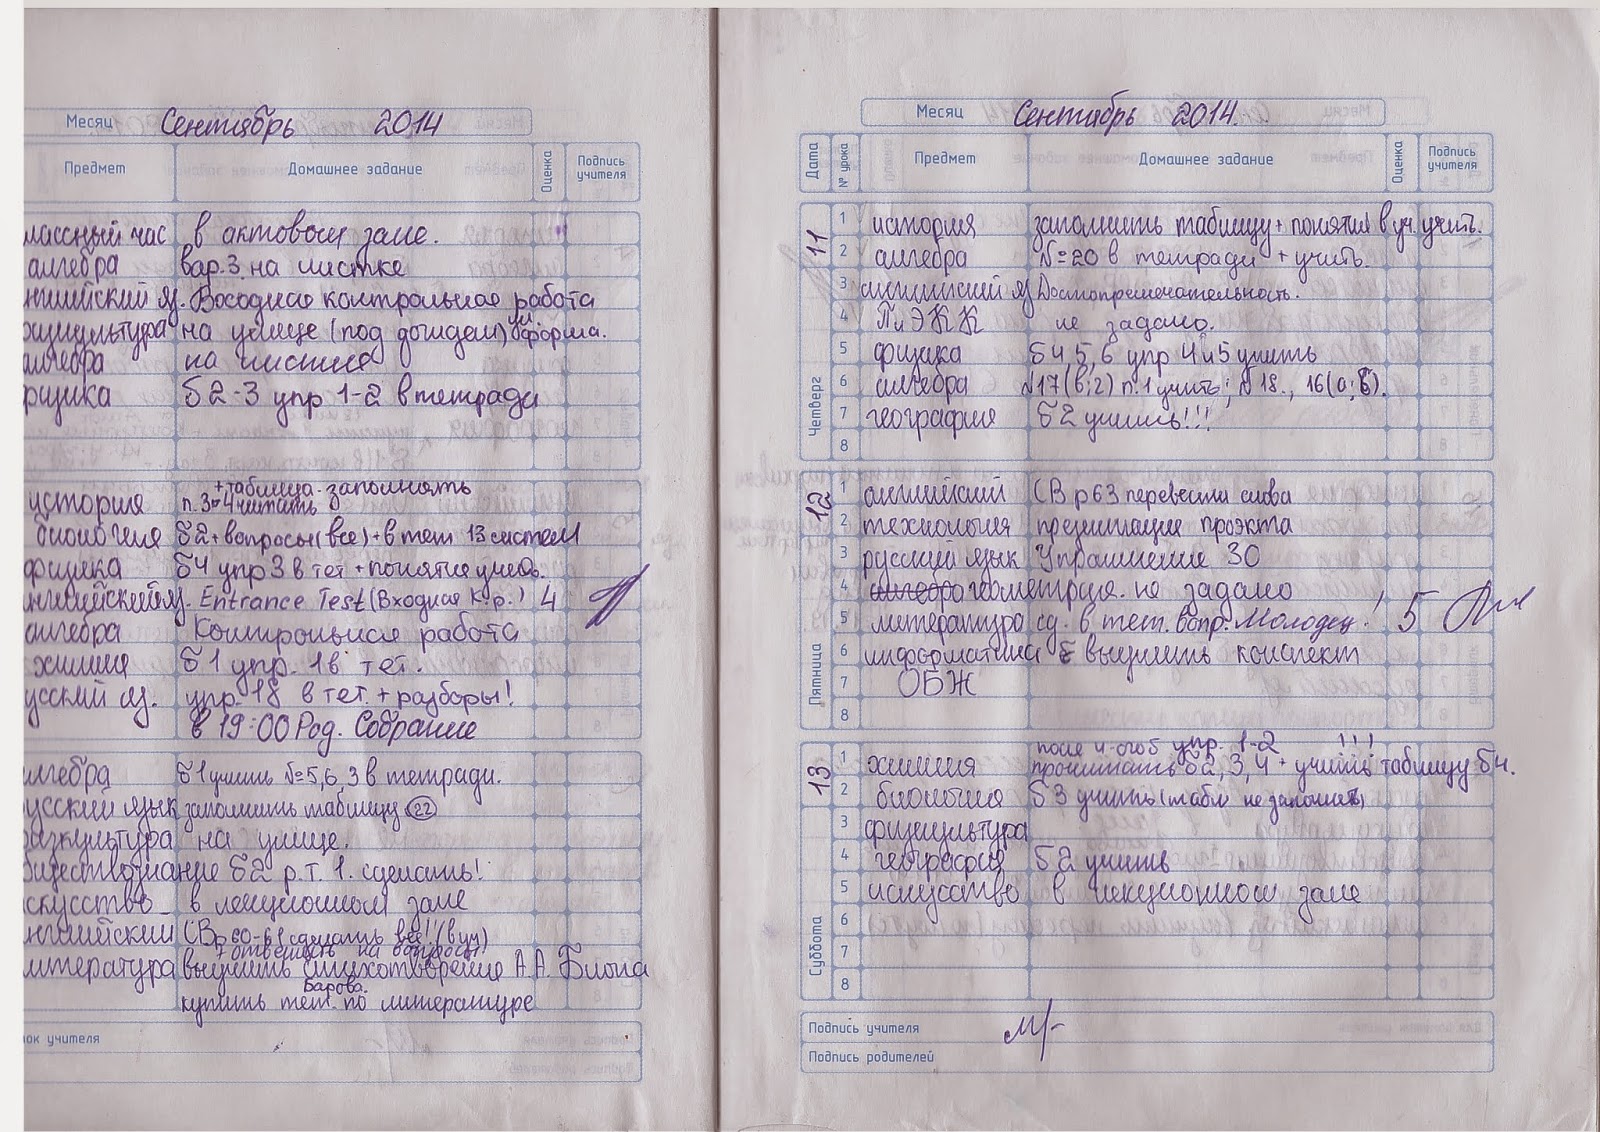 Месяц Сентябрь 2014
Предмет Домашнее задание Оценка Подпись учителя
лассный час в актовом зале.
алгебра вар.3 на листке
нглийский яз. Входная контрольная работа
зицкультура на улице (под дождем) форма.
алгебра на листке
физика §2-3 упр 1-2 в тетради
+таблица заполнять
история п. 3-4 читать
биология §2 + вопросы (все) + в тет 13 систем
физика §4 упр 3 в тет + понятия учить.
нглийский яз. Entrance Test (Входная к.р.) 4
алгебра Контрольная работа
химия §1 упр. 1 в тет.
усский яз. упр. 18 в тет. + разборы!
в 19:00 Род. Собрание
лгебра §1 учить №5,6,3 в тетради.
русский язык заполнить таблицу 22
физкультура на улице.
бществознание §2 р.т. 1. сделать!
скусство в лекционном зале
нглийский СВ р 60-61 сделать все!! (в уч)
+ отвечать на вопросы
литература выучить стихотворение А.А. Блока
купить тет. по литературе
ок учителя
Месяц Сентябрь 2014.
Дата № урока Предмет Домашнее задание Оценка Подпись учителя
11 Четверг
1 история заполнить таблицу + понятия в уч. учить.
2 алгебра №20 в тетради + учить.
3 английский яз Достопримечательность.
4 ПиЭКК не задано.
5 физика §4,5,6 упр 4 и 5 учить
6 алгебра №17(в;г) п.1 учить; №18., 16(а;б).
7 география §2 учить!!!
8
12 Пятница
1 английский СВ р 63 перевести слова
2 технология презентация проэкта
3 русский язык Упражнение 30
4 алгебра геометрия. не задано
5 литература сд. в тет. вопр. Молодец! 5
6 информатика выучить конспект
7 ОБЖ
8
13 Суббота
упр. 1-2 !!!
1 химия прочитать §2,3,4 + учить таблицу §4.
2 биология §3 учить (табл не заполнять)
3 физкультура
4 география §2 учить
5 искусство в лекционном зале
6
7
8
Подпись учителя
Подпись родителей